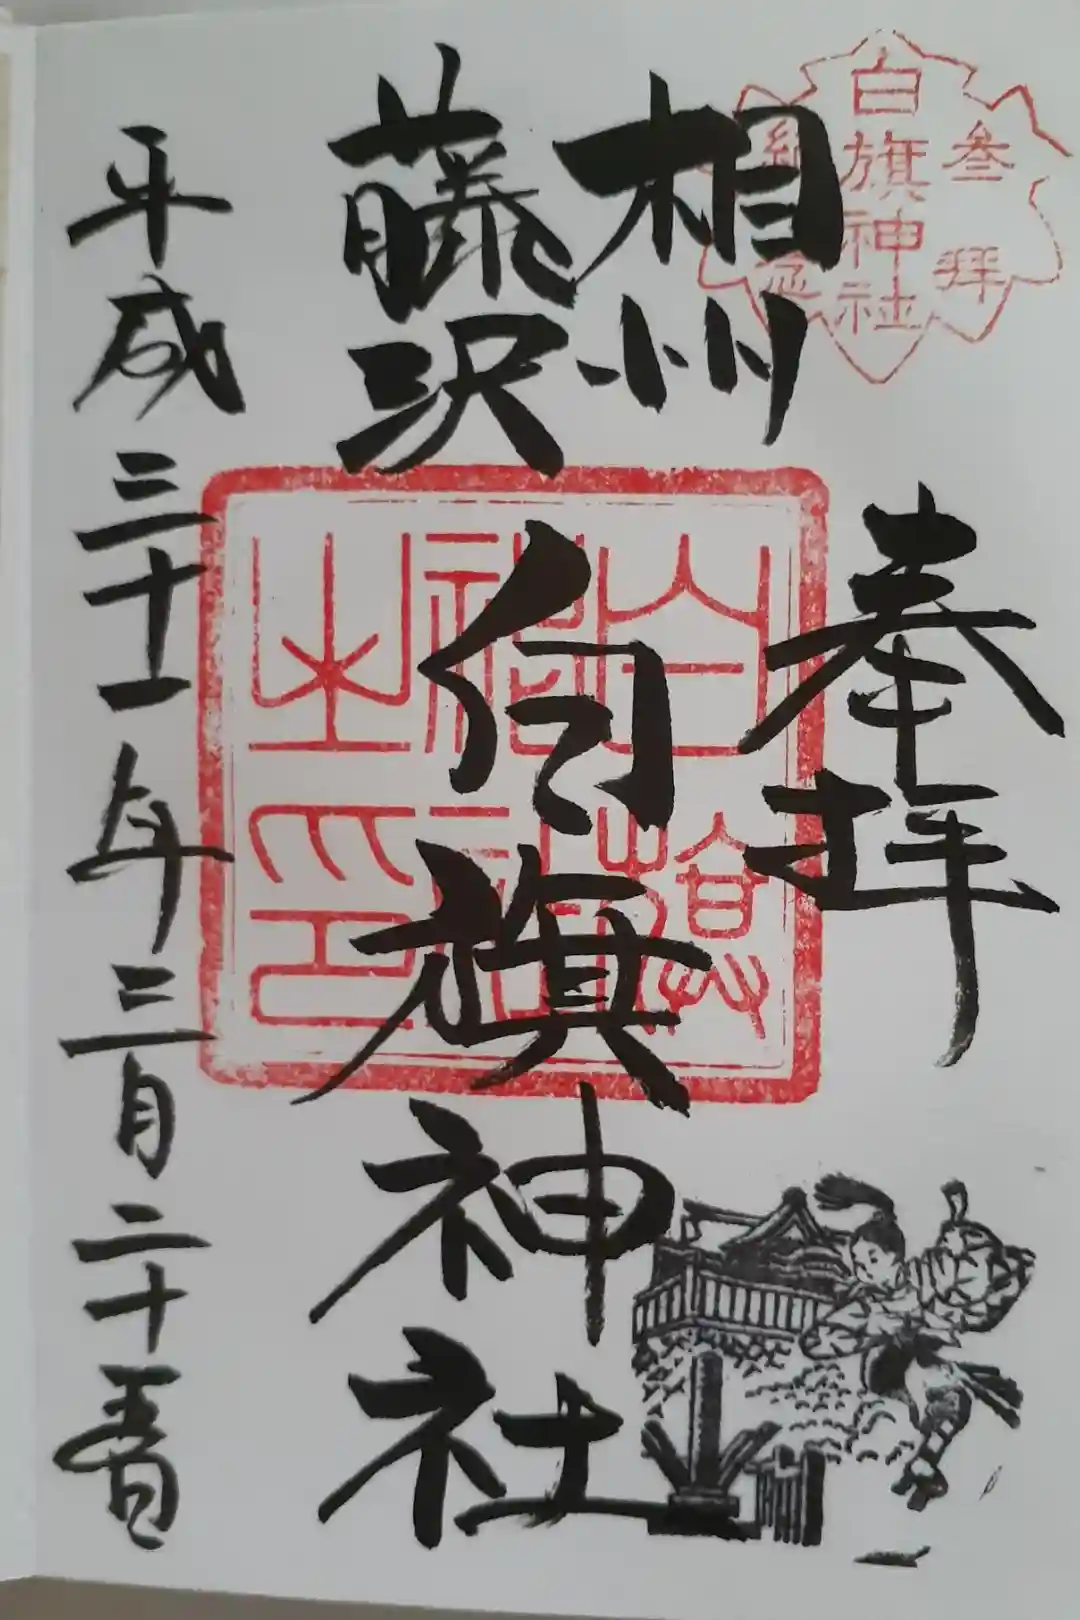 奉拝
叁拝
白旗神社
紀念
相州
藤沢
白旗神社
白旗
神社
之印
平成三十一年三月二十五日